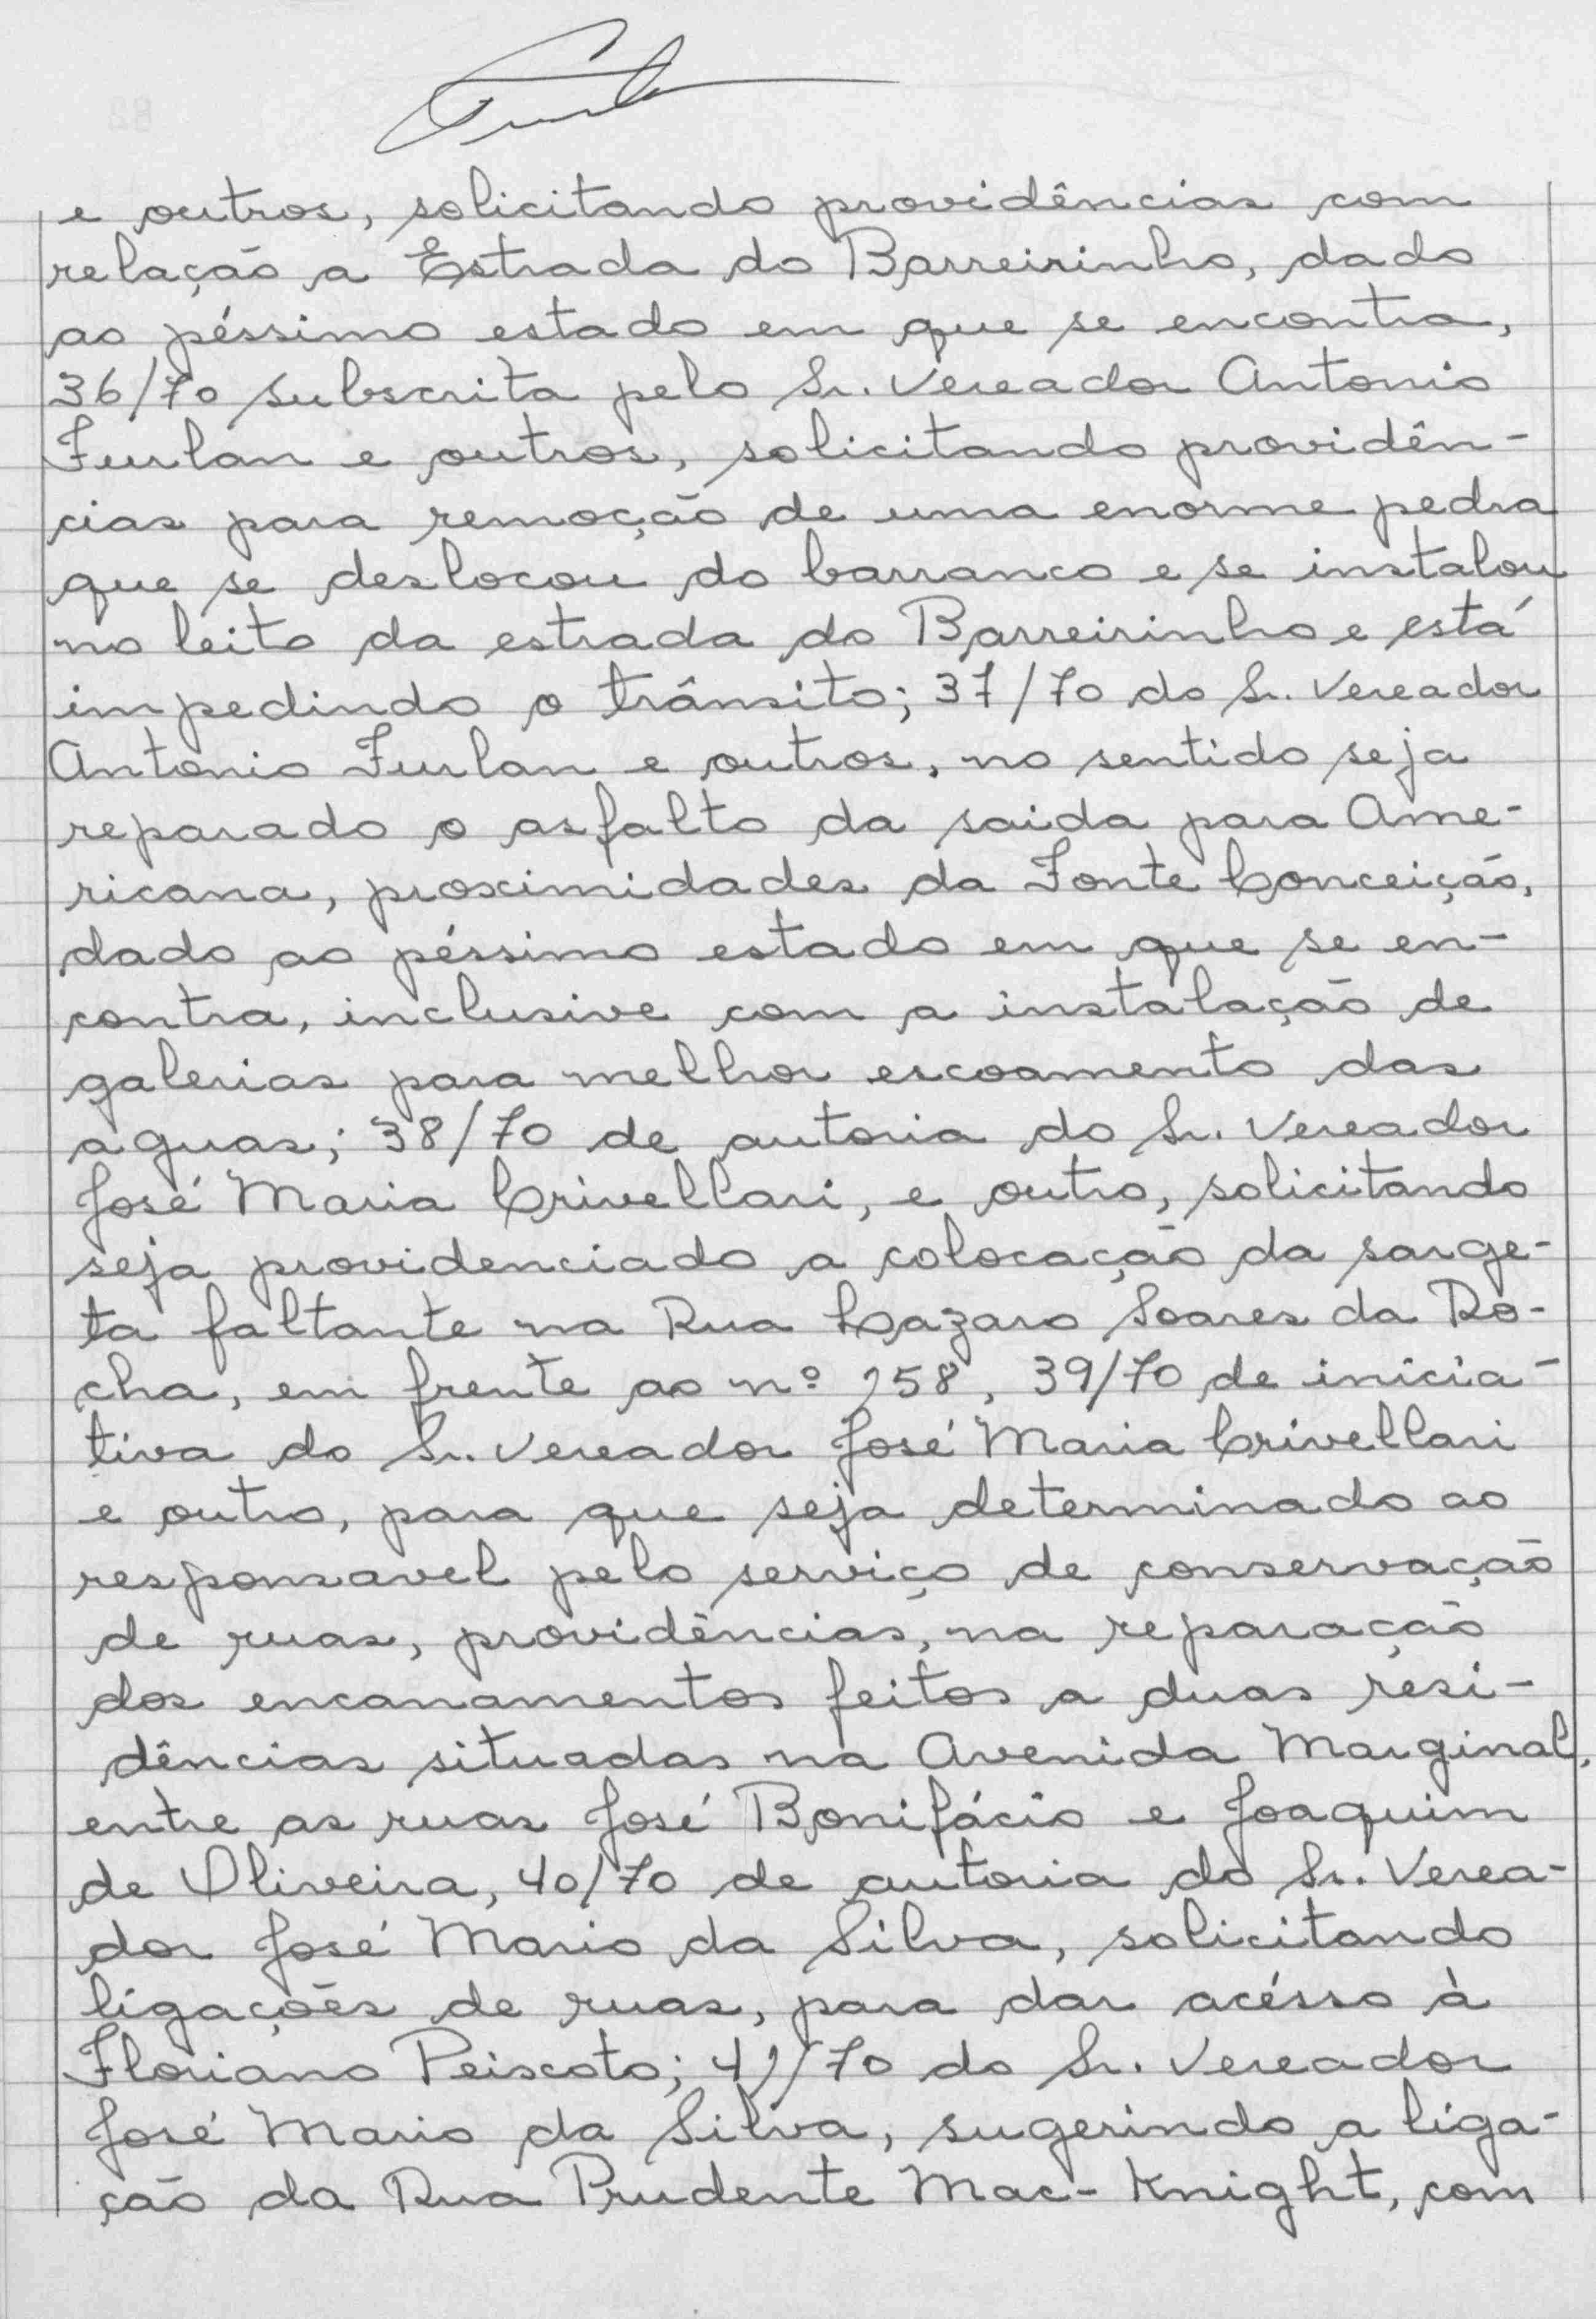 e outros, solicitando providências com
relação a Estrada do Barreirinho, dado
ao péssimo estado em que se encontra,
36/70 subscrita pelo Sr. Vereador Antonio
Furlan e outros, solicitando providên-
cias para remoção de uma enorme pedra
que se deslocou do barranco e se instalou
no leito da estrada do Barreirinho e está
impedindo o trânsito; 37/70 do Sr. Vereador
Antonio Furlan e outros, no sentido seja
reparado o asfalto da saida para Ame-
ricana, proximidades da Fonte Conceição,
dado ao péssimo estado em que se en-
contra, inclusive com a instalação de
galerias para melhor escoamento das
aguas; 38/70 de autoria do Sr. Vereador
José Maria Crivellari, e outro, solicitando
seja providenciado a colocação da sarge-
ta faltante na Rua Lazaro Soares da Ro-
cha, em frente ao nº 258, 39/70 de inicia-
tiva do Sr. Vereador José Maria Crivellari
e outro, para que seja determinado ao
responsavel pelo serviço de conservação
de ruas, providências, na reparação
dos encanamentos feitos a duas resi-
dências situadas na Avenida Marginal,
entre as ruas José Bonifácio e Joaquim
de Oliveira, 40/70 de autoria do Sr. Verea-
dor José Mario da Silva, solicitando
ligações de ruas, para dar acésso à
Floriano Peixoto; 41/70 do Sr. Vereador
José Mario da Silva, sugerindo a liga-
ção da Rua Prudente Mac-Knight, com